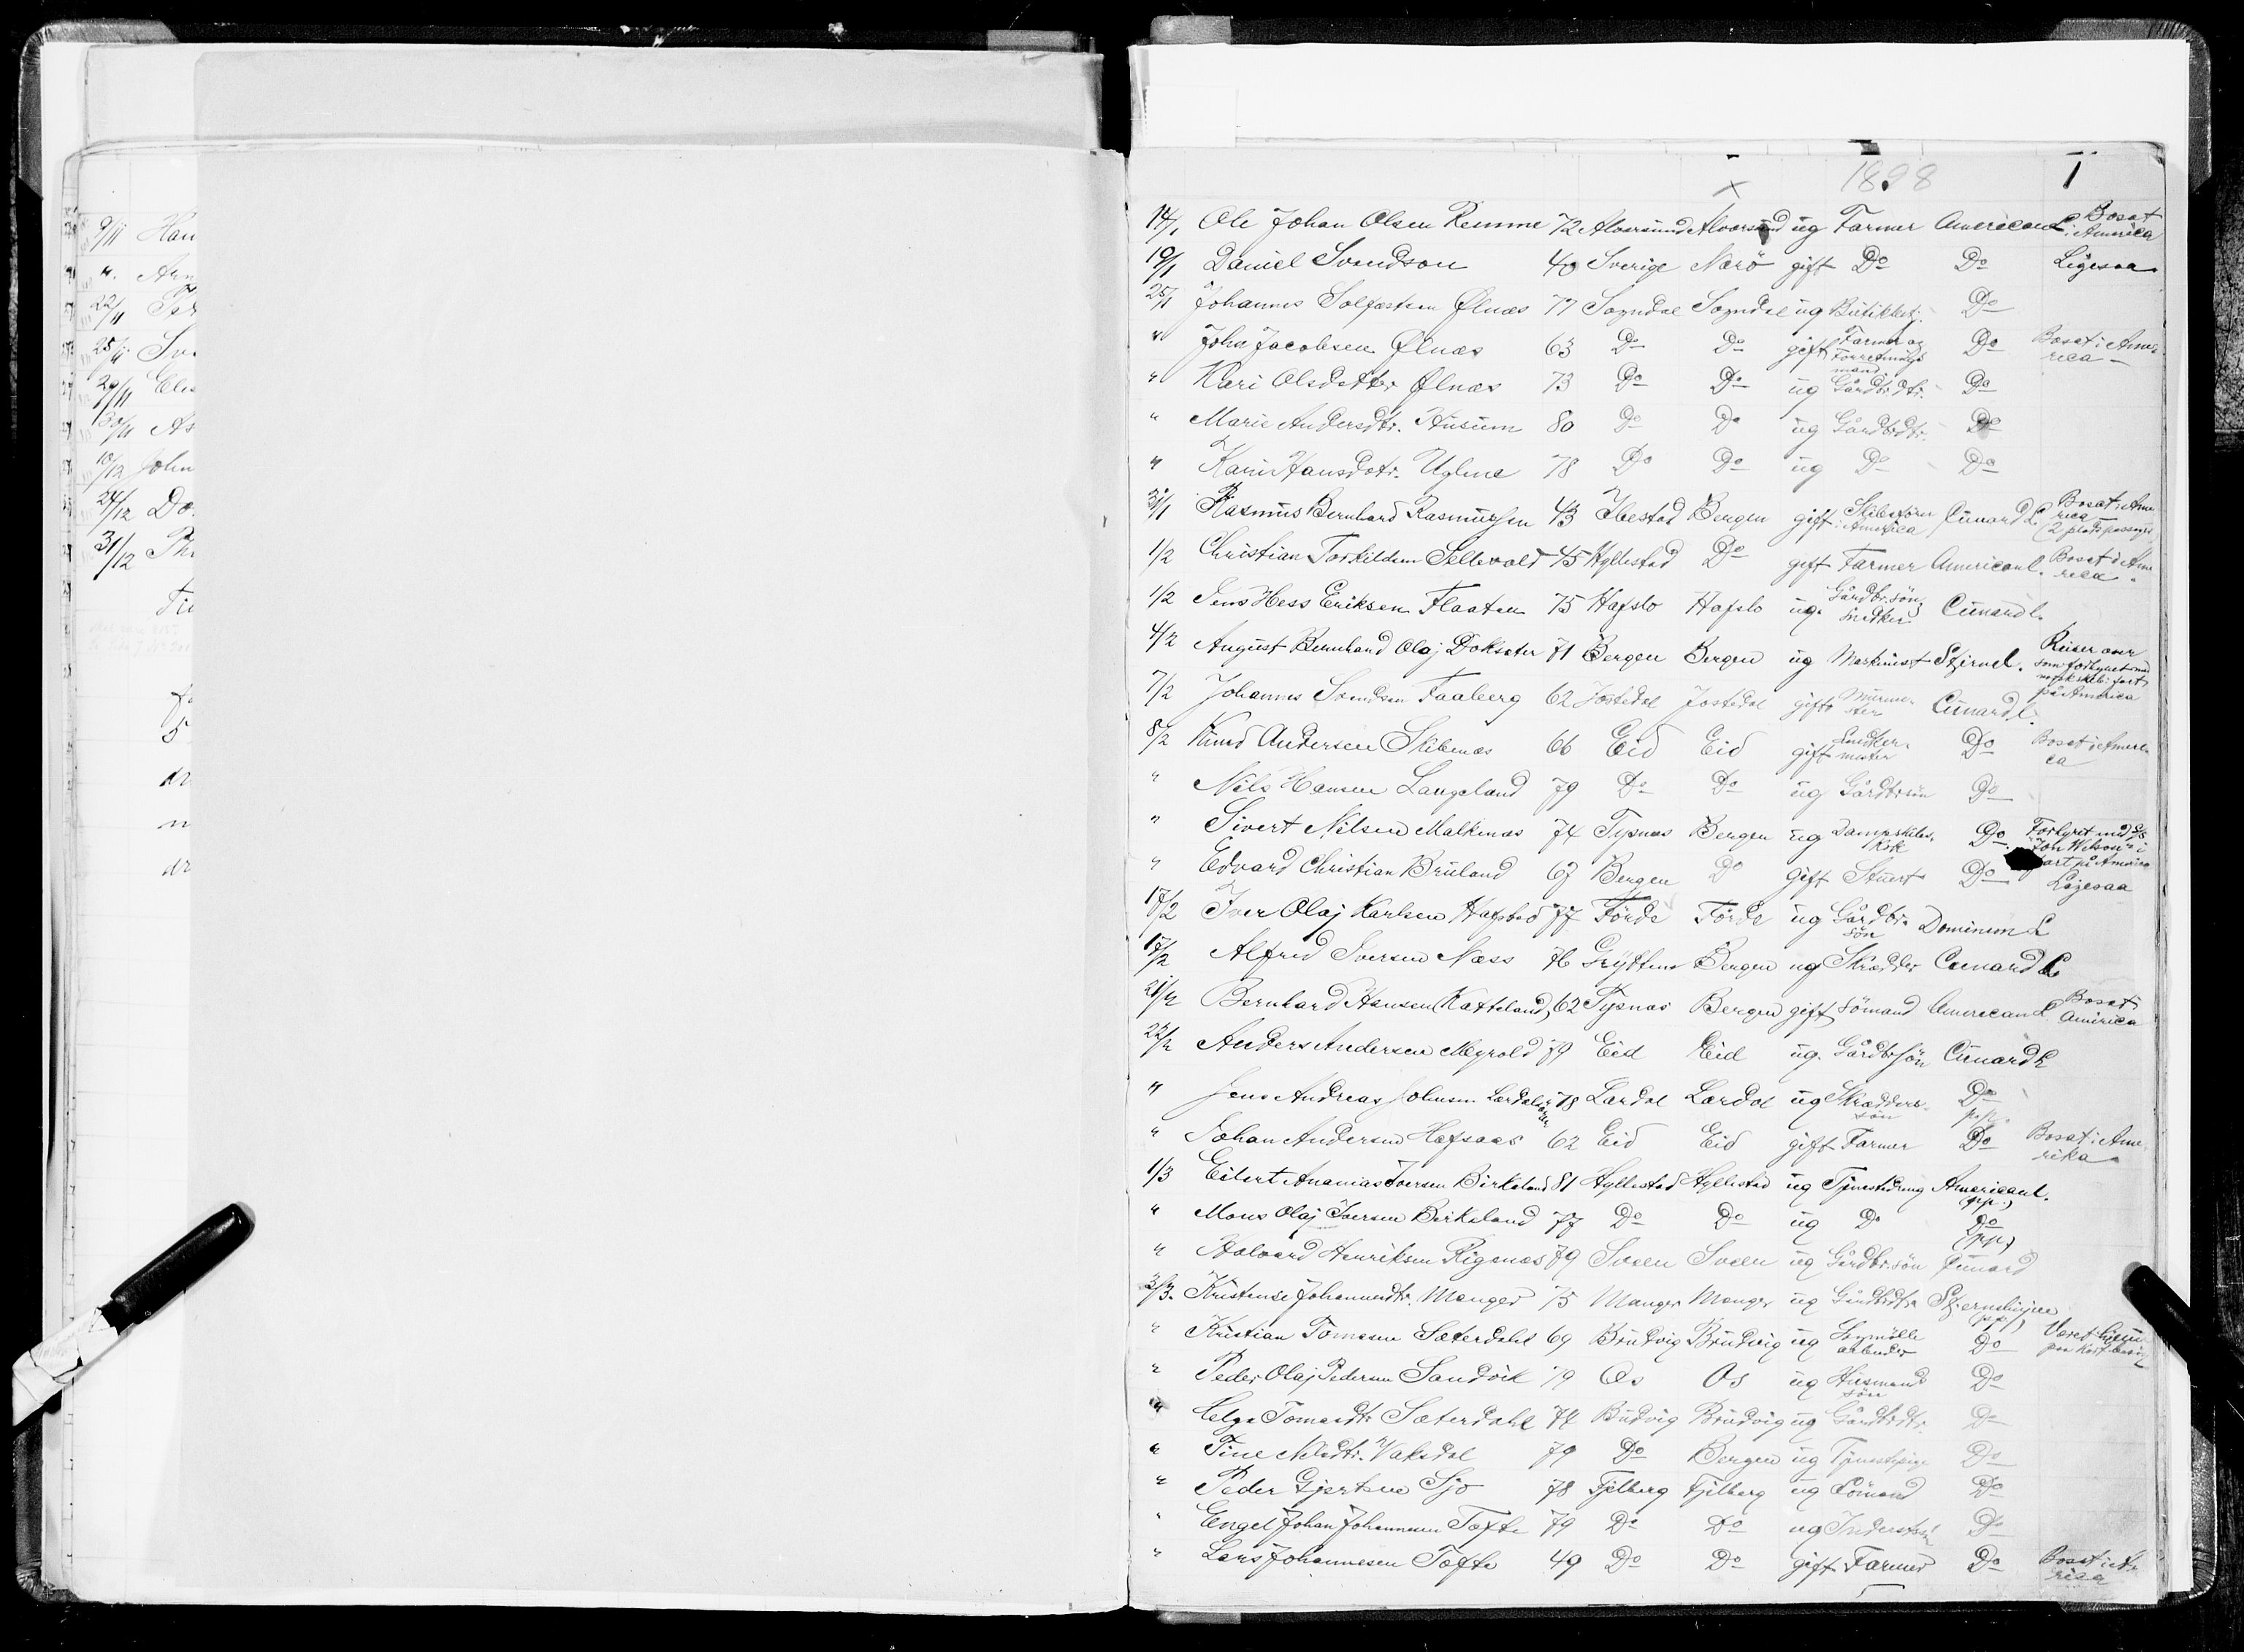 9/11 Han
" Arn
22/11
25/11
29/11
30/11 As
10/12 John
24/12 Do
31/12
1898 1
14/1 Ole Johan Olsen Remme 72 Alversund Alversund ug Farmer American L. Bosat i America
19/1 Daniel Svendson 40 Sverige Nærö gift Do Do Ligesaa
25/1 Johannes Solfæstsen Ølnæs 77 Sogndal Sogndal ug Butikbetj. Do
" John Jacobsen Ølnæs 63 Do Do gift Farmer og Forretningsmand Do Bosat i America
" Kari Olsdatter Ølnæs 73 Do Do ug Gårdbr.dtr. Do
" Marie Andersdtr. Husum 80 Do Do ug Gårdbrdtr. Do
" Kari Hansdotr. Uglene 78 Do Do ug Do Do
31/1 Rasmus Bernhard Rasmussen 43 Ibestad Bergen gift Skibsfører i America Cunard L. Bosat i America (2 plads passager)
1/2 Christian Torkildsen Sellevold 45 Hyllestad Do gift Farmer American l. Bosat i America
1/2 Jens Hess Eriksen Flaaten 75 Hafslo Hafslo ug. Gårdbr.sön, Snedker Cunard l.
4/2 August Bernhard Olaj Doksæter 71 Bergen Bergen ug Maskinist Stjernel. Reiser over som forhyret med norsk skib i fart på America
7/2 Johannes Svendsen Faaberg 62 Jostedal Jostedal gift Murmester Cunard l.
8/2 Knud Andersen Skibenæs 66 Eid Eid gift Snedkermester Do Bosat i America
" Nils Hansen Langeland 79 Do Do ug Gårdbrsön Do
" Sivert Nilsen Malkenæs 74 Tysnæs Bergen ug Dampskibskok Do Forhyret med S/S "Jon Wilson" i fart på America
" Edvard Christian Bruland 67 Bergen Do Gift Stuert Do Ligesaa
17/2 Iver Olaj Karlsen Hafstad 77 Förde Förde ug Gårdbr. sön Dominion L
17/2 Alfred Iversen Næss 76 Grytten Bergen ug Skrædder Cunard L
21/2 Bernhard Hansen (Katteland) 62 Tysnæs Bergen gift Sömand American L. Bosat i America
22/2 Anders Andersen Myrold 79 Eid Eid ug. Gårdbrsön Cunard L
" Jens Andreas Johnsen Lærdalsören 78 Lærdal Lærdal ug Skræddersön Do p.p.
" Johan Andersen Hafsaas 62 Eid Eid gift Farmer Do Bosat i Amerika
1/3 Eilert Ananias Iversen Birkeland 81 Hyllestad Hyllestad ug Tjenestedreng American l. (pp.)
" Mons Olaj Iversen Birkeland 77 Do Do ug Do Do (pp)
" Halvard Henriksen Rigenæs 79 Sveen Sveen ug Gårdbr.sön Cunard
3/3. Kristense Johannesdtr. Manger 75 Manger Manger ug Gårdbrdtr. Stjernelinjen (pp)
" Kristian Tomesen Sæterdahl 69 Brudvig Brudvig ug Sagmölle arbeider Do Været hjemme paa kort besög
" Peder Olaj Pedersen Sandvik 79 Os Os ug Husmandssön Do
" Helga Tomasdtr Sæterdahl 74 Brudvig Brudvig ug Gårdbrdtr. Do
" Tine Nilsdtr. Vaksdal 79 Do Bergen ug Tjenestepige Do
" Peder Gjertsen Sjo 78 Fjelberg Fjelberg ug Sömand Do
" Engel Johan Johannesen Tofte 79 Do Do ug Do
" Lars Johannesen Tofte 49 Do Do gift Farmer Do Bosat i America